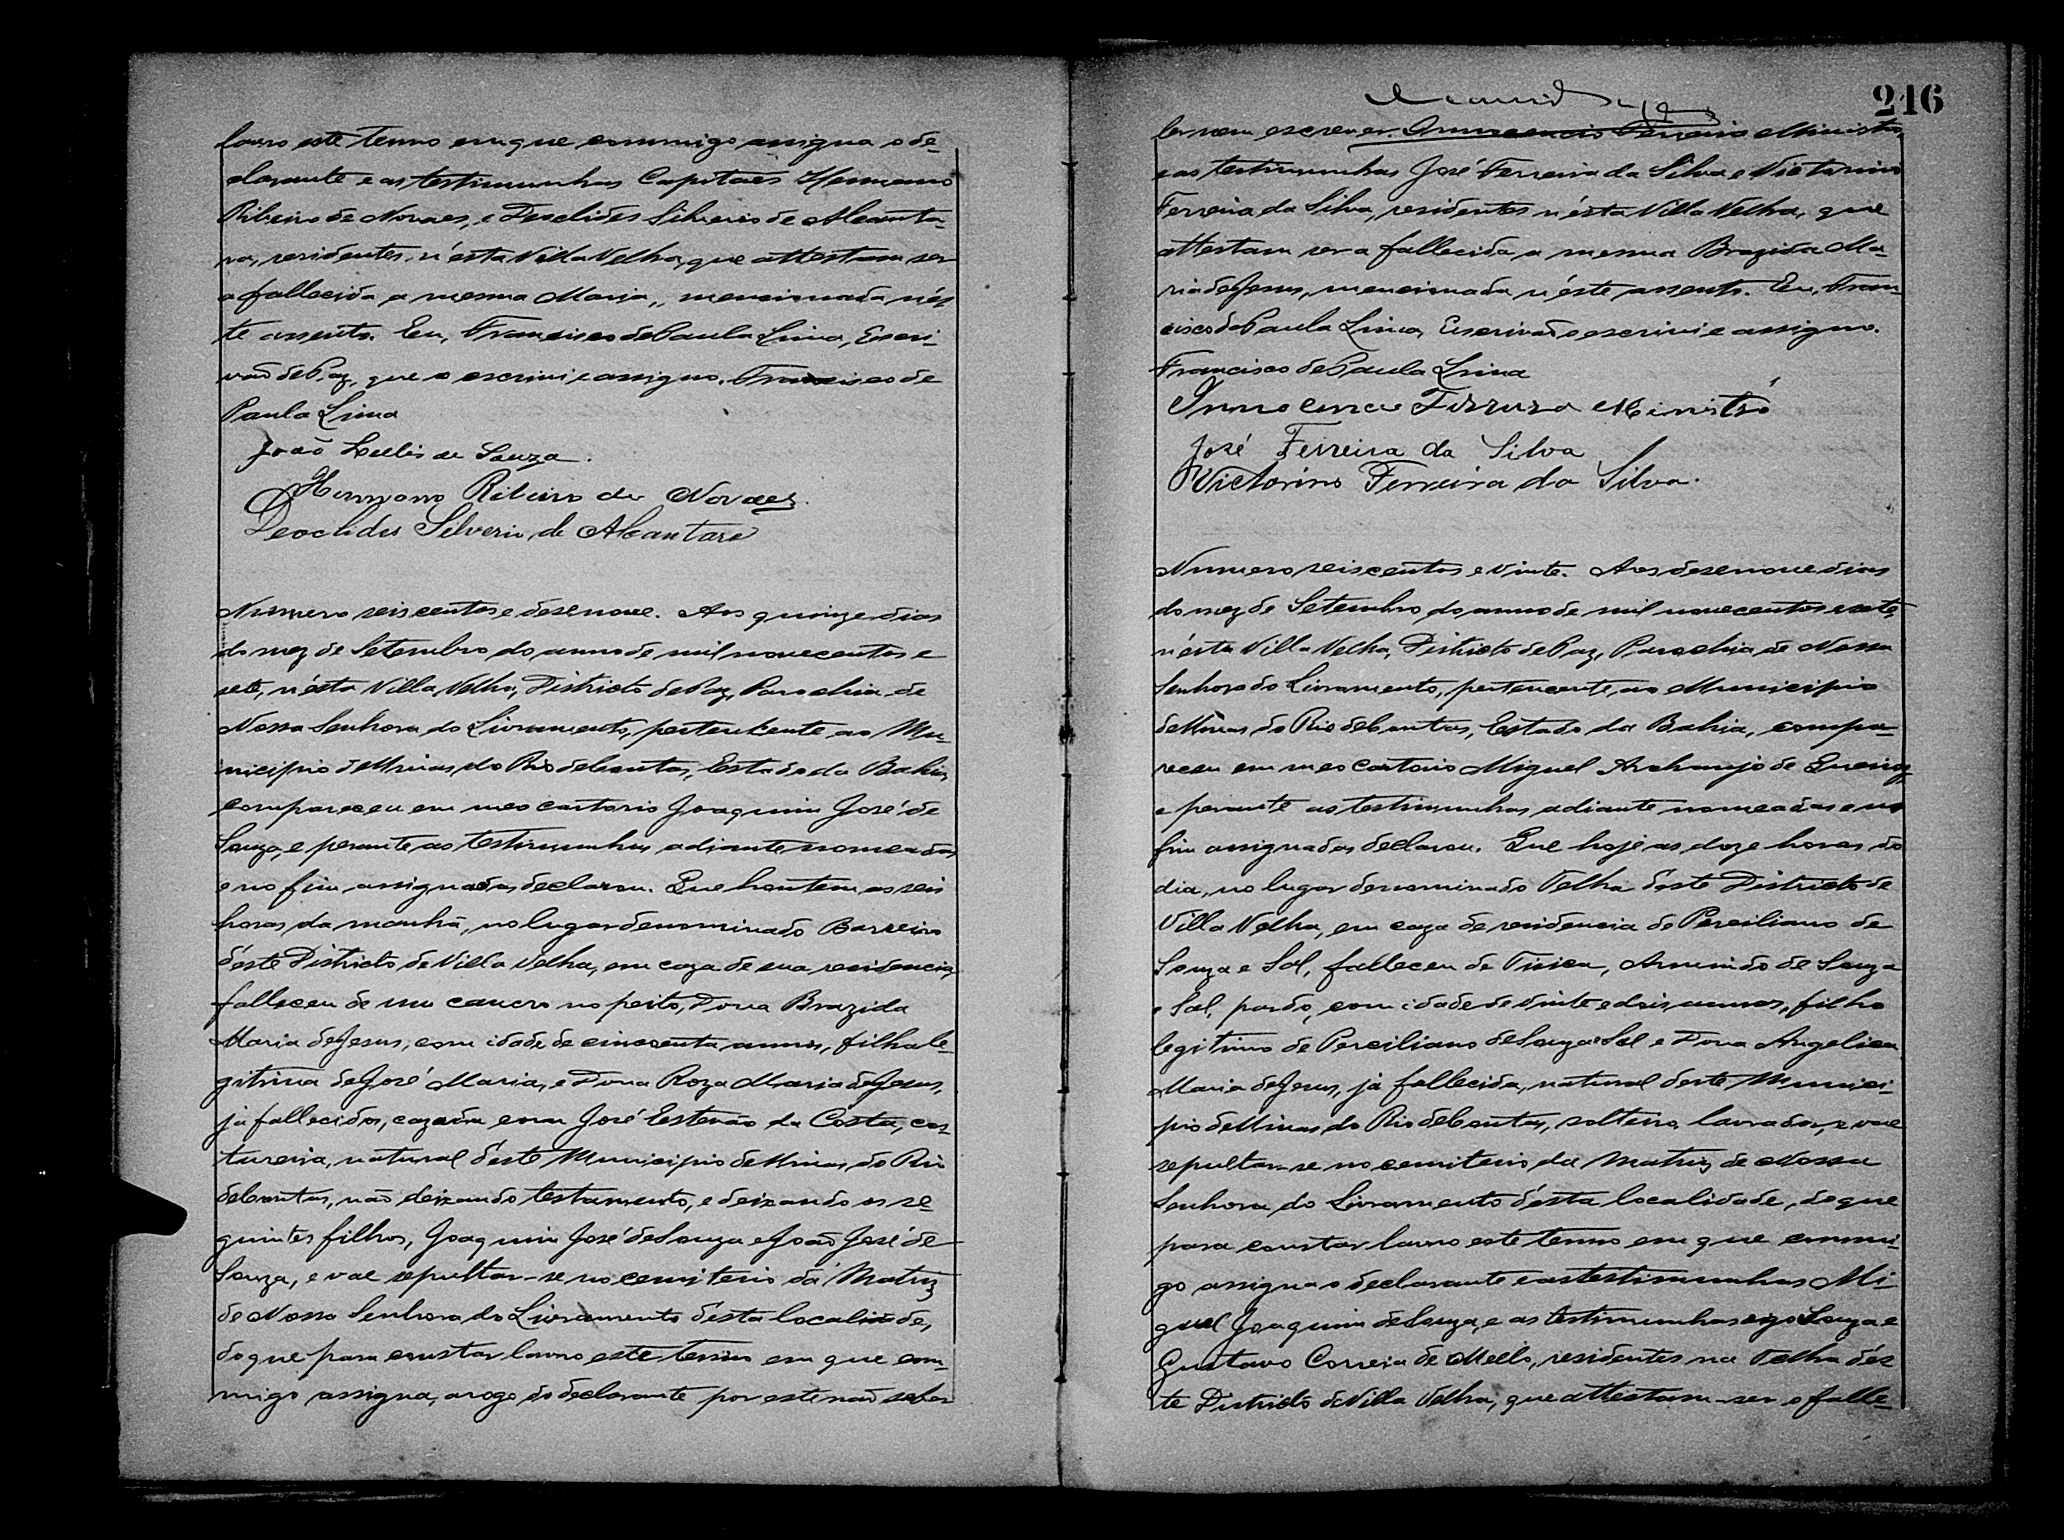 lavro este termo em que commigo assigna o de-
clarante e as testimunhas Capitães Hermano
Ribeiro de Novaes, e Deoclides Silverio de Alcanta-
ra, residentes n'ésta Villa Velha, que attestam ser
a fallecida a mesma Maria, mencionada n'és
te assento. Eu, Francisco de Paula Lima, Escri-
vão de Paz, que o escrivi e assigno. Francisco de
Paula Lima
João Lellis de Souza.
Hermano Ribeiro de Novaes.
Deoclides Silverio de Alcantara
Numero seiscentos e desenove. Aos quinze dias
do mez de Setembro do anno de mil novecentos e
sete, n'ésta Villa Velha, Districto de Paz, Parochia de
Nossa Senhora do Livramento, pertencente ao Mu-
nicipio de Minas do Rio de Contas, Estado da Bahia,
compareceu em meo cartorio Joaquim José de
Souza, e perante as testimunhas adiante nomeadas
e no fim assignadas declarou. Que hontem as seis
horas da manhã, no lugar denominado Barreiro
d'éste Districto de Villa Velha, em caza de sua residencia
falleceu de um cancro no peito, Dona Brazida
Maria de Jesus, com idade de cincoenta annos, filha le-
gitima de José Maria, e Dona Roza Maria de Jesus,
já fallecidos, cazada com José Estevão da Costa, cos-
tureira, natural d'éste Municipio de Minas do Rio
de Contas, não deixando testamento, e deixando os se-
guintes filhos, Joaquim José de Souza e João José de
Souza, e vae sepultar-se no cemiterio da Matriz
de Nossa Senhora do Livramento d'ésta localidade,
do que para constar lavro este termo em que com-
migo assigna, a rogo do declarante por este não saber
216
ler nem escrever. Innocencio Ferreira Ministro,
e as testimunhas José Ferreira da Silva e Victorino
Ferreira da Silva, residentes n'ésta Villa Velha, que
attestam ser a fallecida a mesma Brazida Ma-
ria de Jesus, mencionada n'éste assento. Eu, Fran-
cisco de Paula Lima, Escrivão e escrivi e assigno.
Francisco de Paula Lima
Innocencio Ferreira Ministro
José Ferreira da Silva
Victorino Ferreira da Silva.
Numero seiscentos e vinte. Aos desenove dias
do mez de Setembro do anno de mil novecentos e sete,
n'ésta Villa Velha, Districto de Paz, Parochia de Nossa
Senhora do Livramento, pertencente ao Municipio
de Minas do Rio de Contas, Estado da Bahia, compa-
receu em meo cartorio Miguel Archanjo de Queiroz
e perante as testimunhas adiante nomeadas e no
fim assignadas declarou. Que hoje as doze horas do
dia, no lugar denominado Telha d'este Districto de
Villa Velha, em caza de residencia de Perciliano de
Souza e Sol, falleceu de Tisica, Arnindo de Souza
e Sol, pardo, com idade de vinte e dois annos, filho
legitimo de Perciliano de Souza e Sol e Dona Angelica
Maria de Jesus, já fallecida, natural deste Munici-
pio de Minas do Rio de Contas, solteiro, lavrador, e vae
sepultar-se no cemiterio da Matriz de Nossa
Senhora do Livramento d'ésta localidade, do que
para constar lavro este termo em que commi-
go assigna o declarante e as testimunhas Mi-
guel Joaquim de Souza, e as testimunhas digo Souza e
Gustavo Correia de Mello, residentes na Telha dés
te Districto de Villa Velha, que attestam ser o falle-